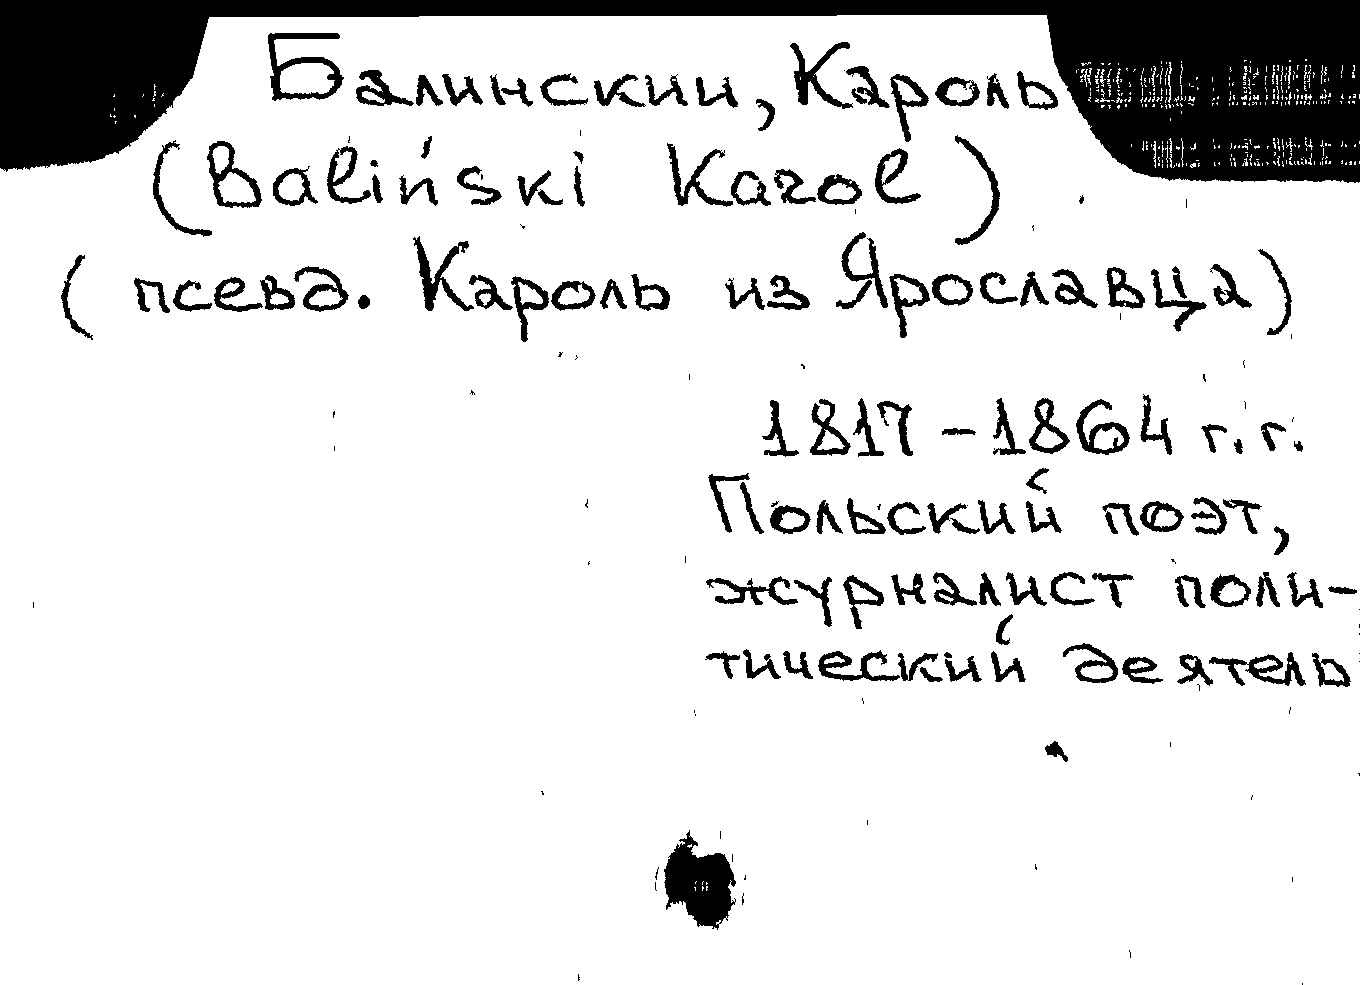 Балинскии, Кароль
(Baliński Karol)
(псевд. Кароль из Ярославца)
1817-1864 г.г.
Польский поэт,
журналист поли-
тический деятель